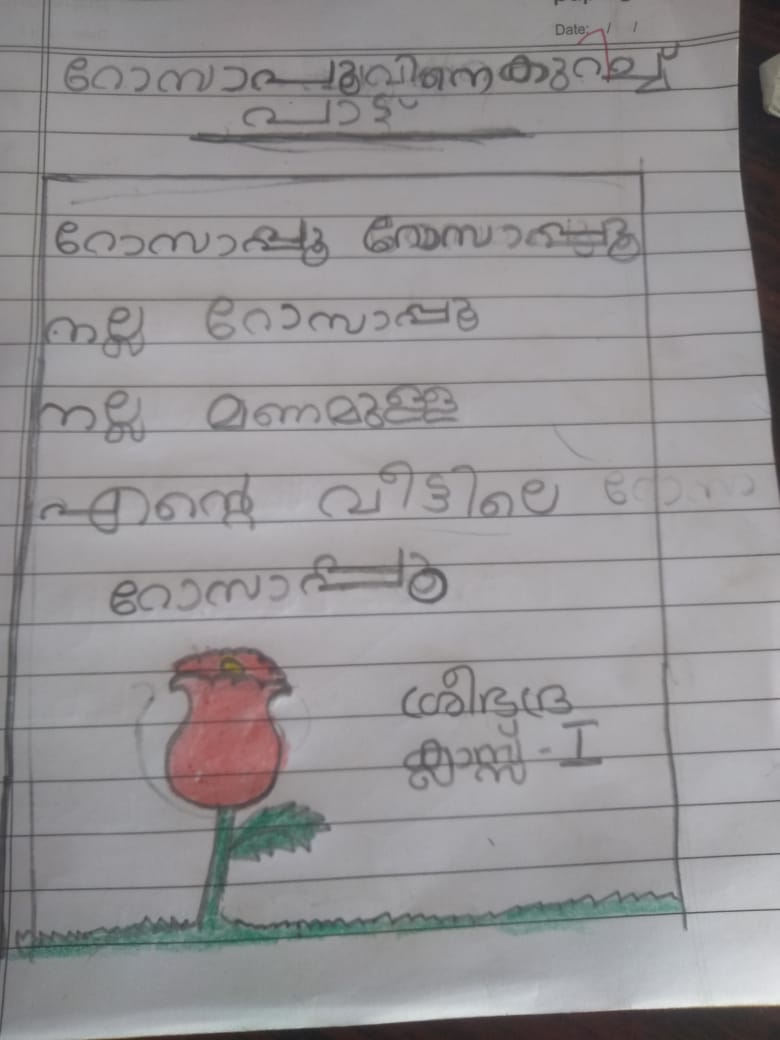 Date: / /
റോസാപ്പൂവിനെകുറിച്ച്
പാട്ട്
റോസാപ്പൂ റോസാപ്പൂ
നല്ല റോസാപ്പൂ
നല്ല മണമുള്ള
എന്റെ വീട്ടിലെ റോസാ
റോസാപ്പൂ
ശ്രീഭദ്ര
ക്ലാസ്സ് - I